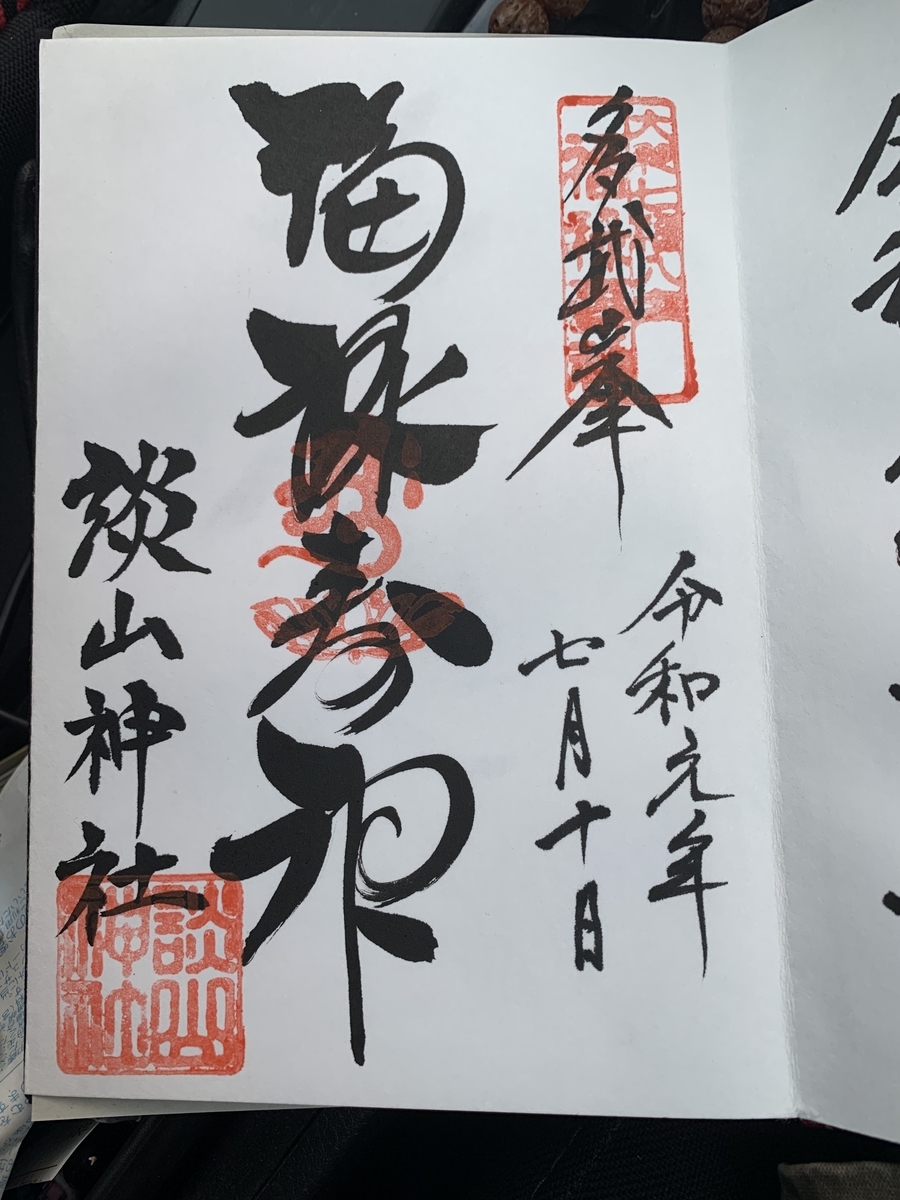 多武峯
令和元年
七月十日
福禄寿神
談山神社
談山神社